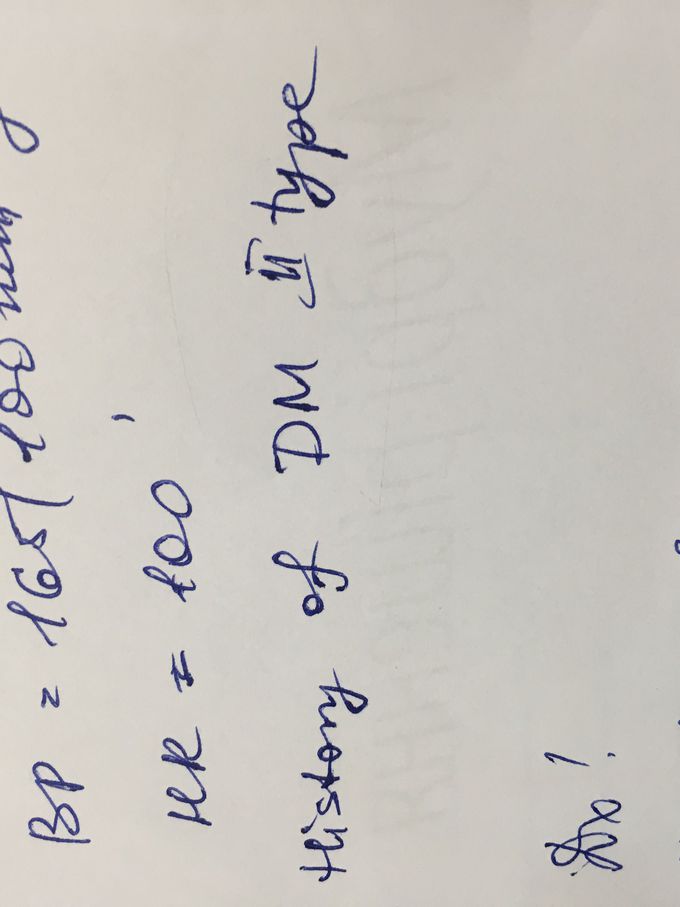 BP = 165/100 mm
HR = 100'
History of DM II type